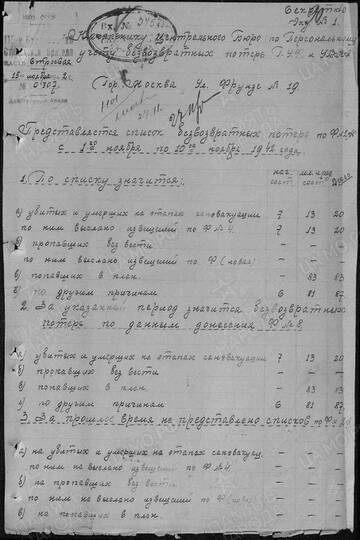 Секретно
Экз № 1.
Начальнику Центрального Бюро по Персональному
учету безвозвратных потерь Г.У.Ф. и У.В.
строевая
15 ноября 2 г.
№ 0707
Гор. Москва Ул. Фрунзе № 19
Представляется список безвозвратных потерь по Ф № 2
с 1го ноября по 10ое ноября 1942 года.
1. По списку значится:
нач. сост
мл. нач сост
всего
а) убитых и умерших на этапах санэвакуации 7 13 20
по ним выслано извещений по Ф № 4. 7 13 20
б) пропавших без вести – – –
по ним выслано извещений по Ф (новая) – – –
в) попавших в плен. – 83 83
г) по другим причинам 6 81 87
2. За указанный период значится безвозвратных
потерь по данным донесения Ф № 8.
а) убитых и умерших на этапах санэвакуации 7 13 20
б) пропавших без вести – – –
в) попавших в плен – 83 83
г) по другим причинам 6 81 87
3. За прошлое время не представлено списков по Ф № 2
а) на убитых и умерших на этапах санэвакуац. – – –
по ним не выслано извещений по Ф № 4. – – –
б) на пропавших без вести – – –
по ним не выслано извещений по Ф (новая) – – –
в) на попавших в плен. – – –